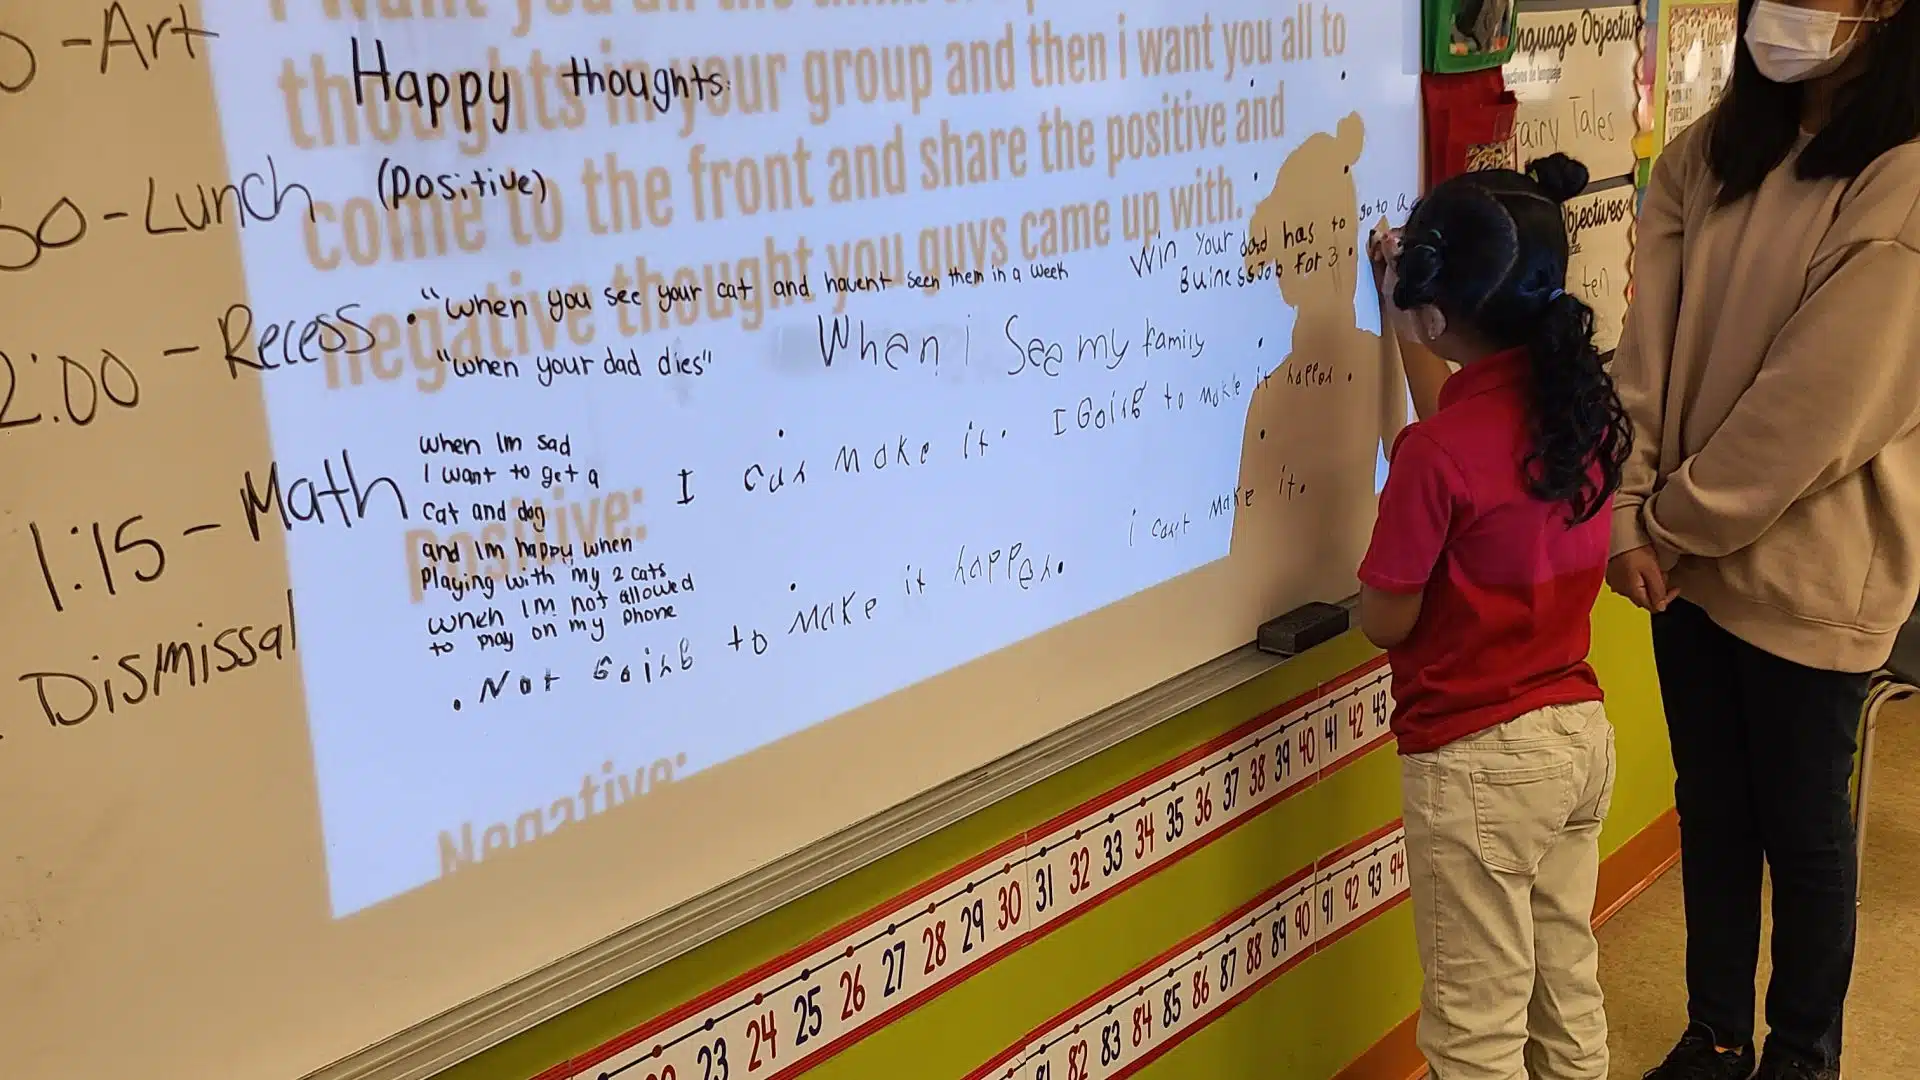 thoughts in your group and then i want you all to
come to the front and share the positive and
negative thought you guys came up with.
Positive:
Negative:
-Art
-Lunch
2:00 - Recess
1:15 - Math
Dismissal
Happy thoughts:
(Positive)
"when you see your cat and havent seen them in a week
"when your dad dies"
When i See my family
Win your dad has to go to a
Buiness Job for 3
when Im sad
I want to get a
cat and dog
and Im happy when
Playing with my 2 cats
when Im not allowed
to play on my phone
I can make it.
I Going to make it happen.
i cant make it.
Not Going to make it happen.
Language Objective
Fairy Tales
Objectives
ten
23 24 25 26 27 28 29 30 31 32 33 34 35 36 37 38 39 40 41 42 43
81 82 83 84 85 86 87 88 89 90 91 92 93 94